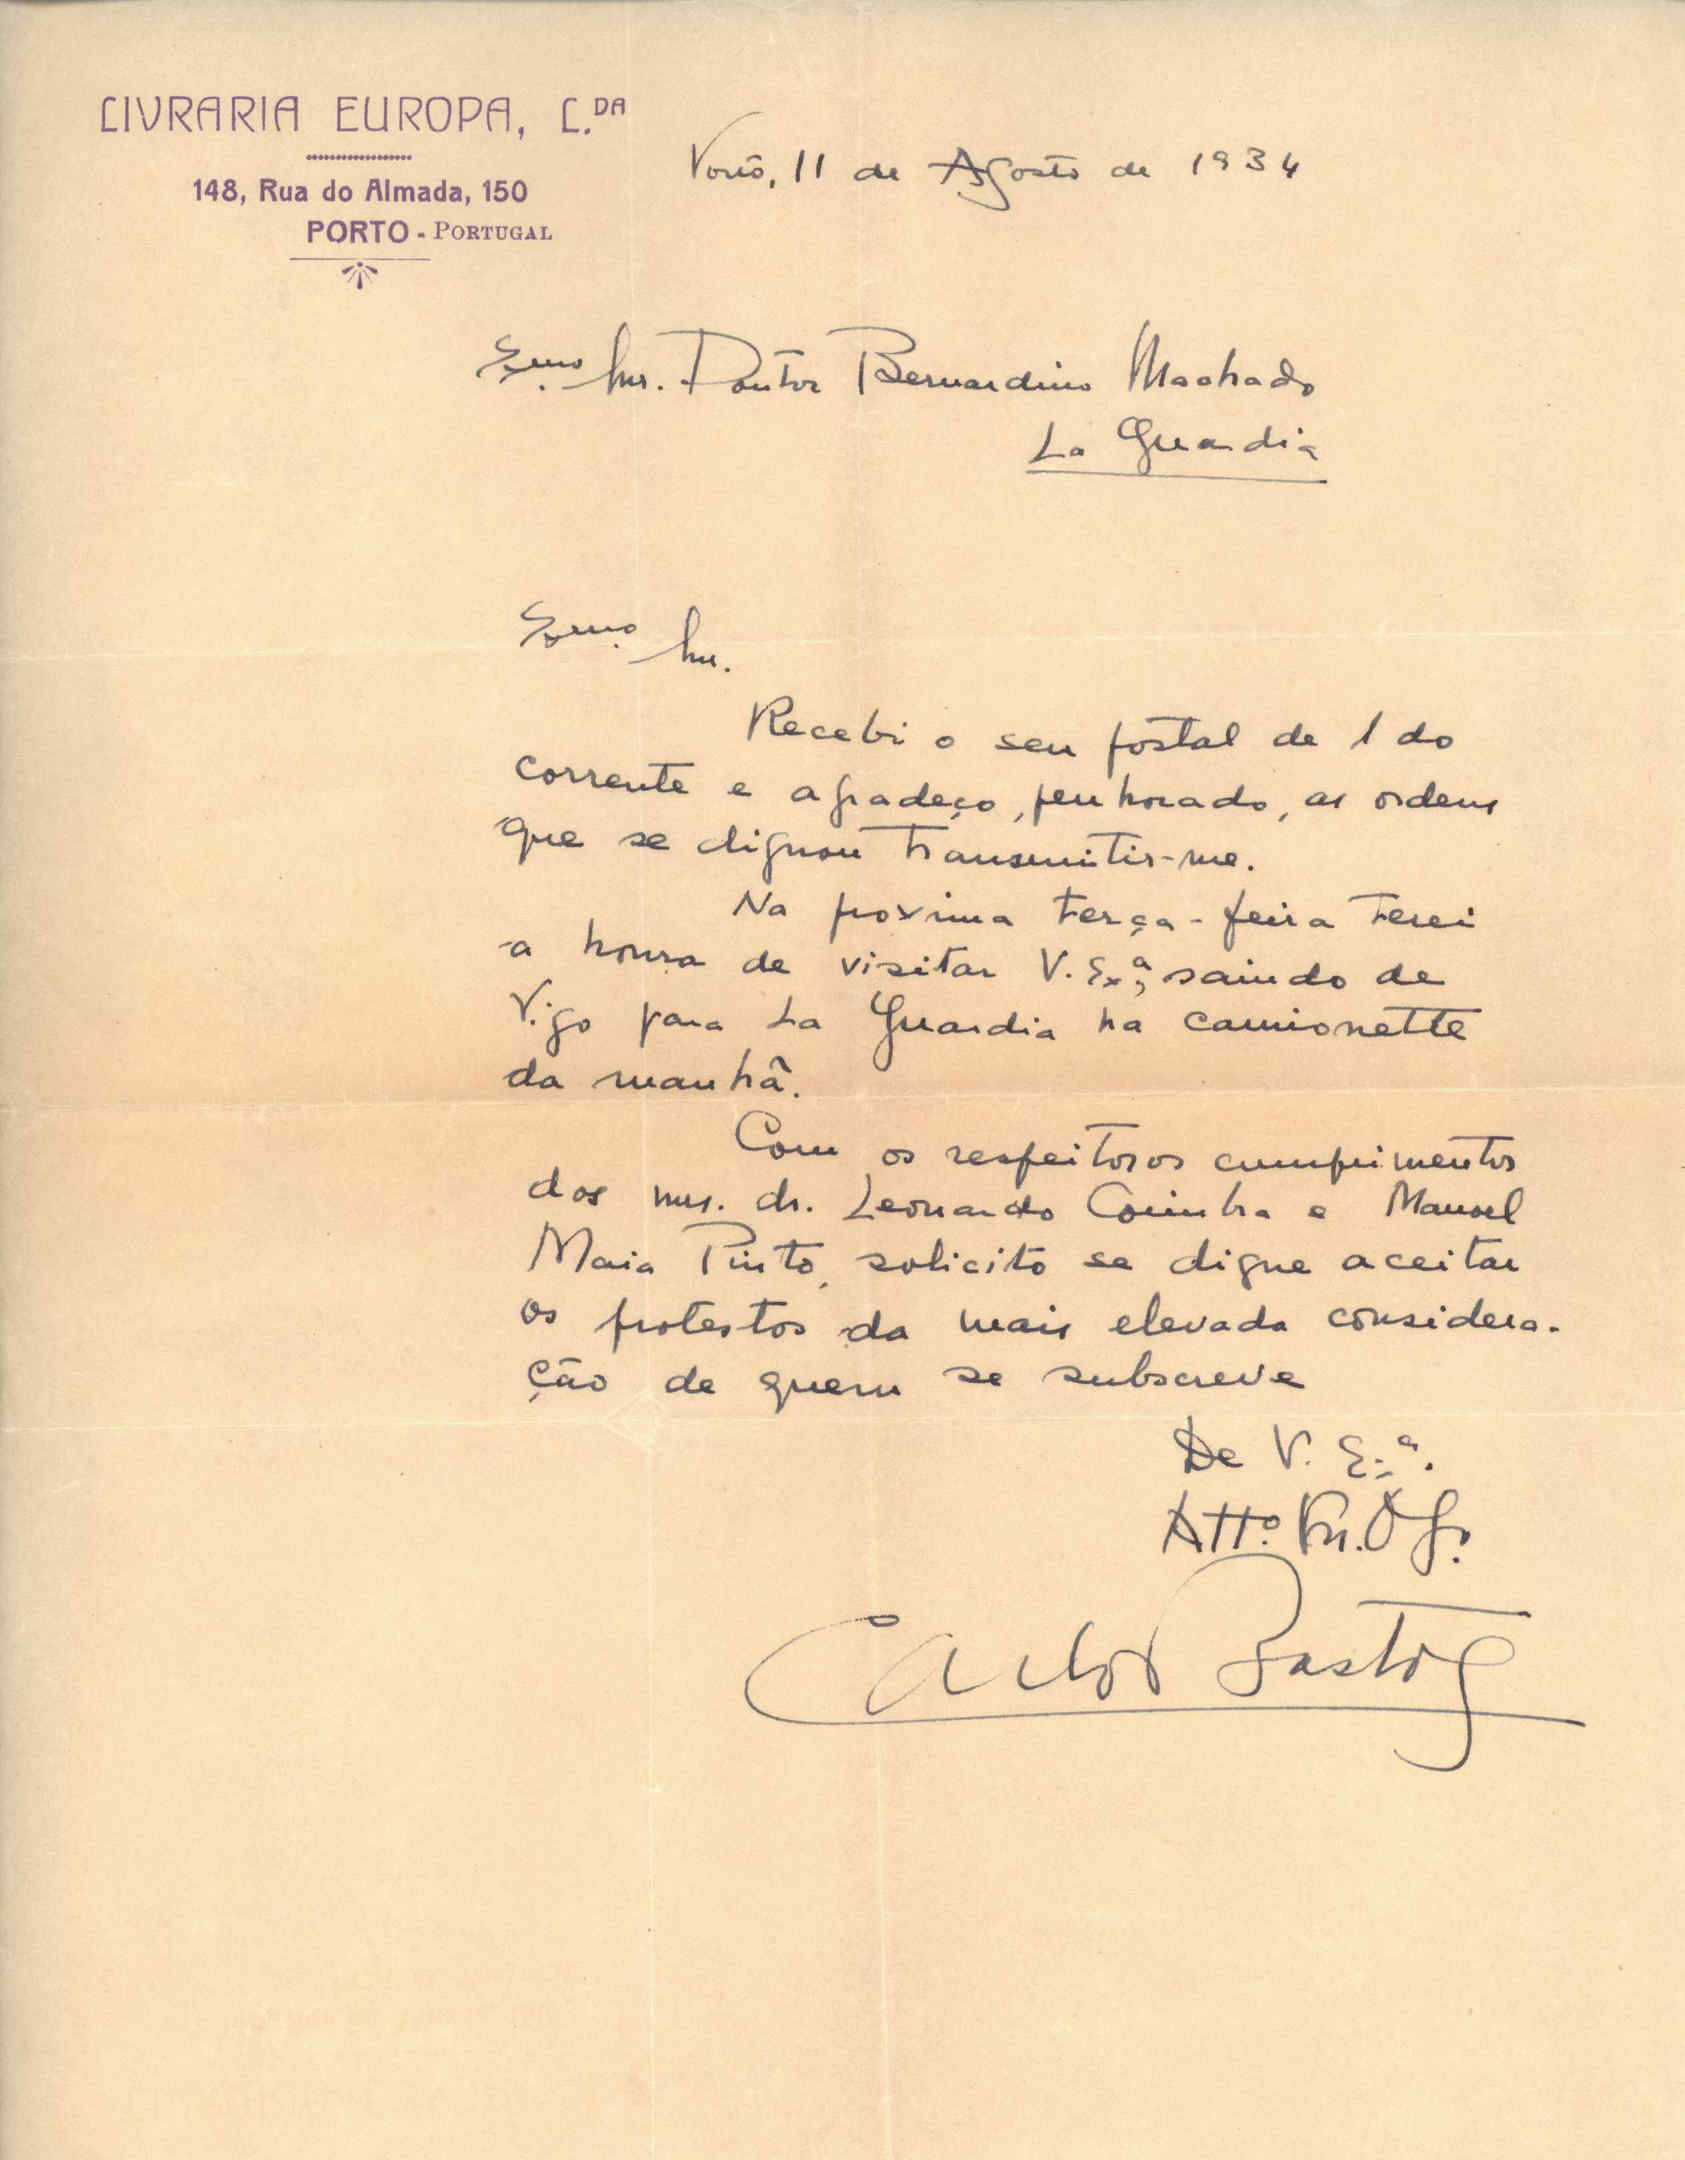 LIVRARIA EUROPA, L.DA
148, Rua do Almada, 150
PORTO - PORTUGAL
Porto, 11 de Agosto de 1934
Exmo. Snr. Doutor Bernardino Machado
La Guardia
Exmo. Snr.
Recebi o seu postal de 1 do
corrente e agradeço, penhorado, as ordens
que se dignou transmitir-me.
Na proxima terça-feira terei
a honra de visitar V. Ex.ª, saindo de
Vigo para La Guardia na camionette
da manhã.
Com os respeitosos cumprimentos
dos snrs. dr. Leonardo Coimbra e Manoel
Maia Pinto, solicito se digne aceitar
os protestos da mais elevada considera-
ção de quem se subscreve
De V. Ex.ª.
Att.º Vn. Obg.º
Carlos Bastos